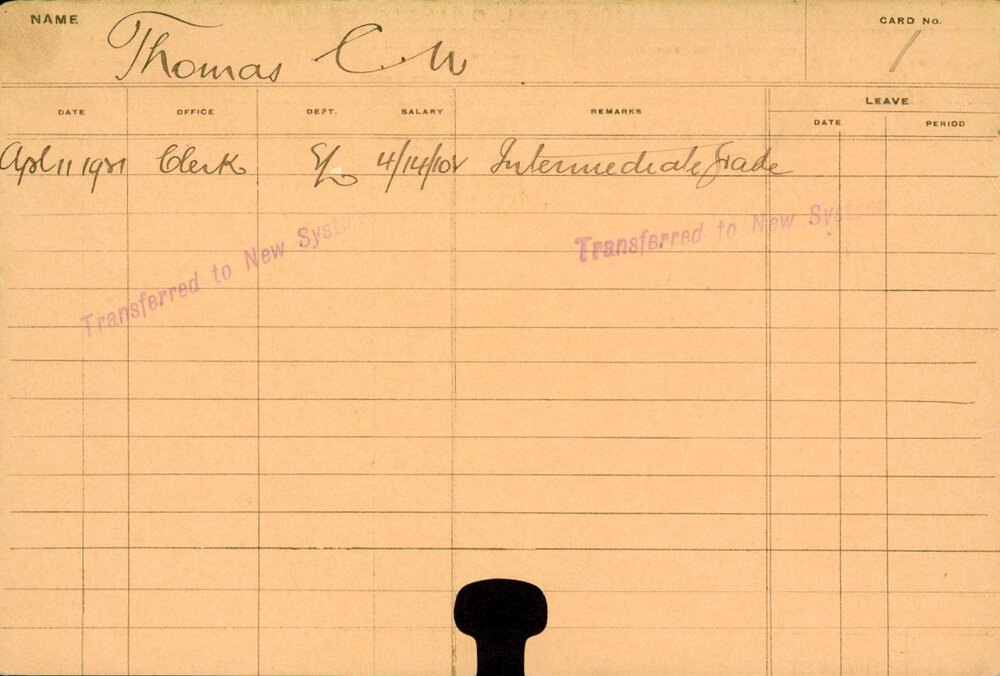 NAME CARD No.
Thomas C. W 1
DATE OFFICE DEPT. SALARY REMARKS LEAVE
DATE PERIOD
Apl 11 1921 Clerk 4/14/10 Intermediate Grade
Transferred to New System
Transferred to New System